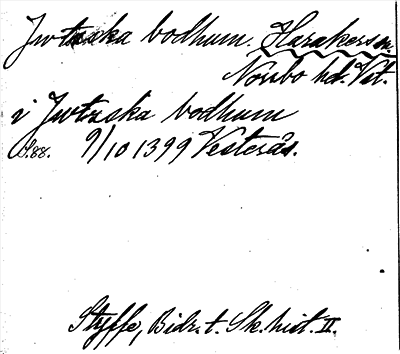 Jwtzska bodhum. Harakers sn.
Norrbo hd. Vst.
i Jwtzska bodhum
S. 88. 9/10 1399 Vesterås.
Styffe, Bidr. t. Sk. hist. II.